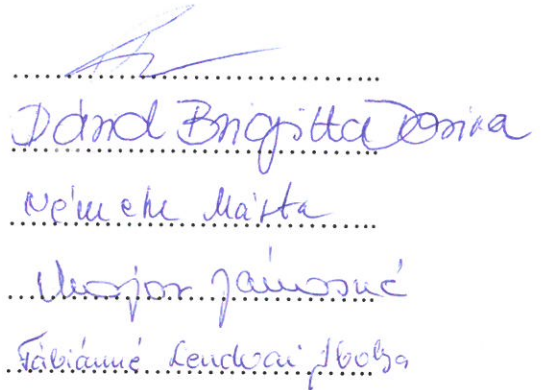 Dánd Brigitta Dorina
Németh Márta
Major Jánosné
Fábiánné Lendvai Ibolya